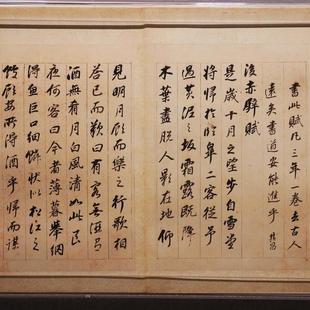 書此賦凡三年一卷去古人
遠矣書道安能進乎
後赤壁賦
是歲十月之望步自雪堂
將歸於臨皋二客從予
過黃泥之坂霜露既降
木葉盡脫人影在地仰
見明月顧而樂之行歌相
答已而歎曰有客無酒有
酒無肴月白風清如此良
夜何客曰今者薄暮舉網
得魚巨口細鱗狀似松江之
鱸顧安所得酒乎歸而謀